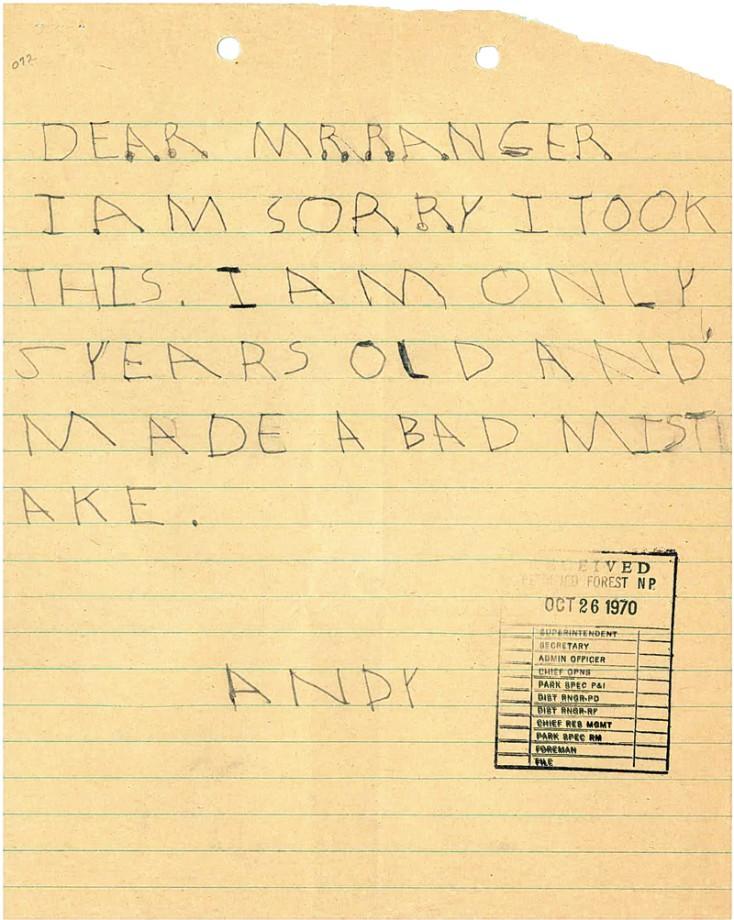 072
DEAR MR RANGER
I AM SORRY I TOOK
THIS. I AM ONLY
5 YEARS OLD AND
MADE A BAD MIST
AKE.
EIVED
FOREST N.P.
OCT 26 1970
SUPERINTENDENT
SECRETARY
ADMIN OFFICER
CHIEF OPNS
PARK SPEC P&I
DIST RNGR-PD
DIST RNGR-RF
CHIEF RES MGMT
PARK SPEC RM
FOREMAN
FILE
ANDY